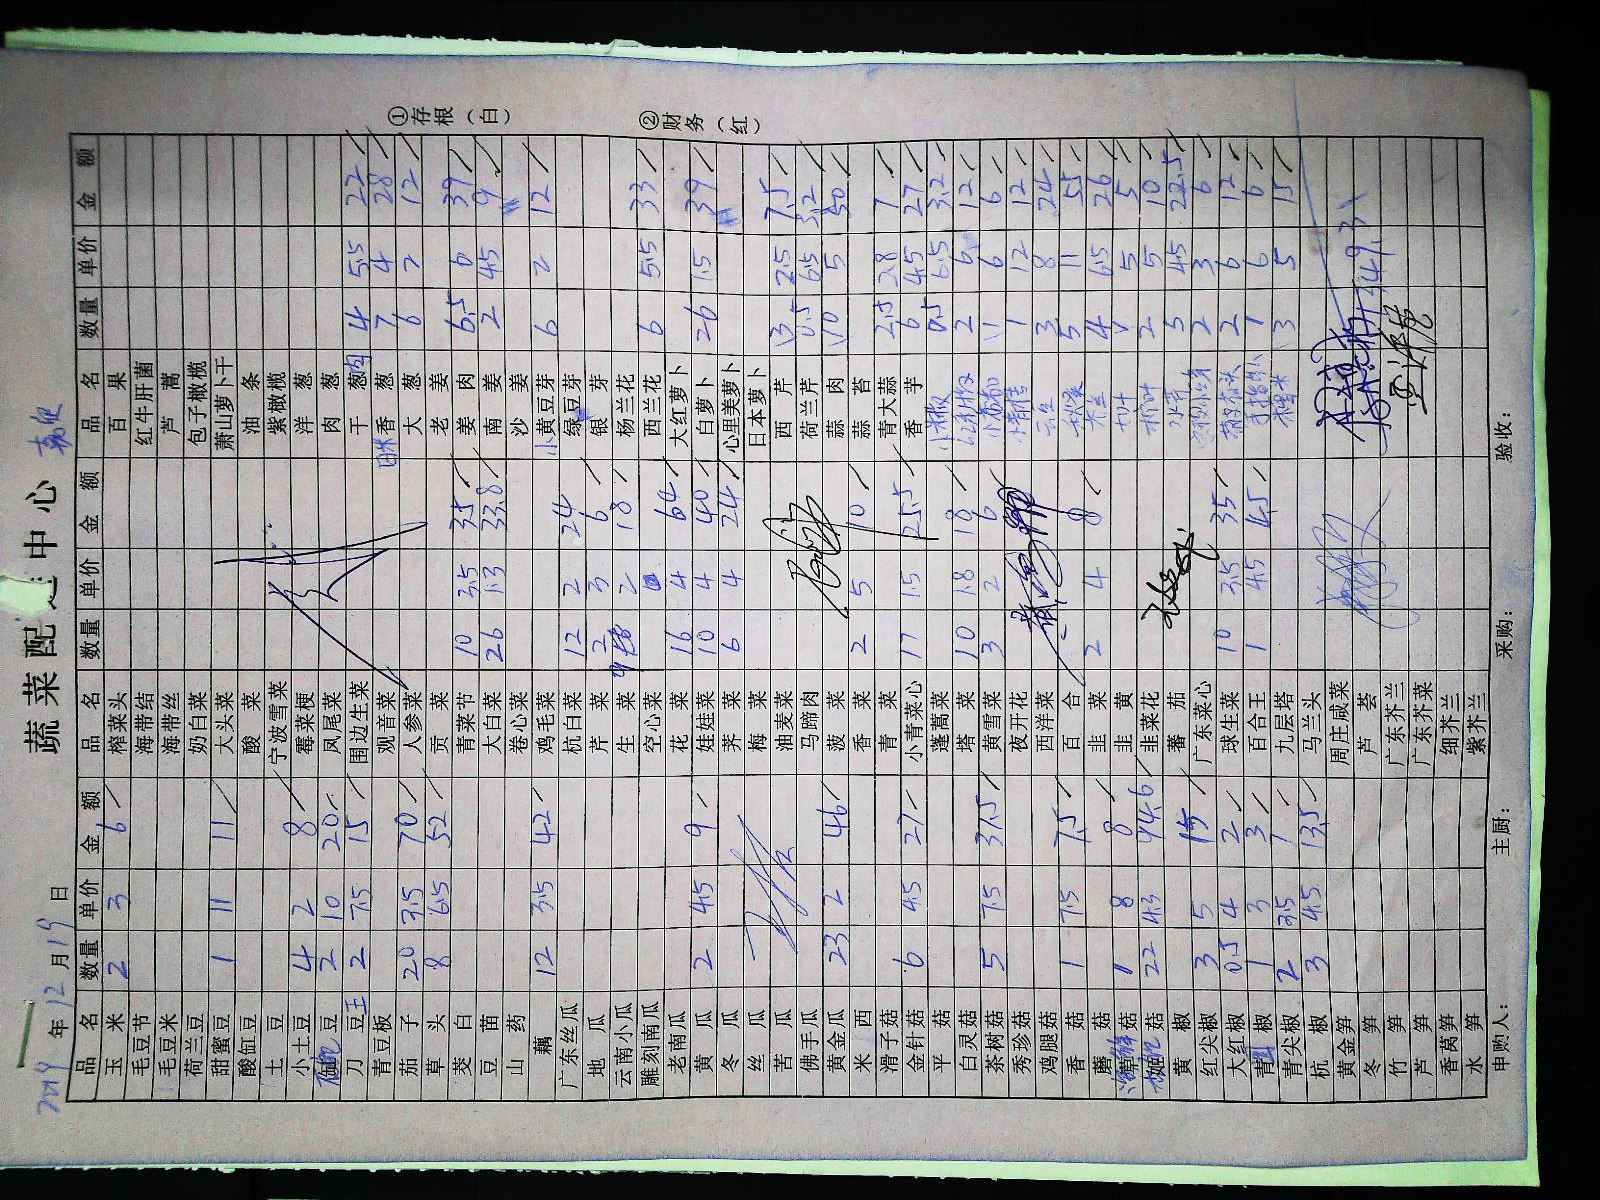 蔬菜配送中心
2019年12月19日
品名 数量 单价 金额 品名 数量 单价 金额 品名 数量 单价 金额
玉米 2 3 6 榨菜头 百果
毛豆节 海带结 红牛肝菌
毛豆米 海带丝 芦蒿
荷兰豆 奶白菜 包子橄榄
甜蜜豆 1 11 11 大头菜 萧山萝卜干
酸缸豆 酸菜 油条
土豆 宁波雪菜 紫橄榄
小土豆 4 2 8 霉菜梗 洋葱
豆 2 10 20 凤尾菜 肉葱
刀豆王 2 7.5 15 围边生菜 干葱肉 4 5.5 22
青豆板 观音菜 香葱 7 4 28
茄子 20 3.5 70 人参菜 大葱 6 2 12
草头 8 6.5 52 贡菜 老姜
茭白 青菜节 10 3.5 35 姜肉 6.5 6 39
豆苗 大白菜 26 1.3 33.8 南姜 2 4.5 9
山药 卷心菜 沙姜
藕 12 3.5 42 鸡毛菜 小黄豆芽 6 2 12
广东丝瓜 杭白菜 12 2 24 绿豆芽
地瓜 芹菜 2 3 6 银芽
云南小瓜 生菜 2 18 杨兰花
雕刻南瓜 空心菜 西兰花 6 5.5 33
老南瓜 花菜 16 4 64 大红萝卜
黄瓜 2 4.5 9 娃娃菜 10 4 40 白萝卜 26 1.5 39
冬瓜 荠菜 6 4 24 心里美萝卜
丝瓜 梅菜 日本萝卜
苦瓜 油麦菜 西芹 3 2.5 7.5
佛手瓜 马蹄肉 荷兰芹 0.5 6.5 3.2
黄金瓜 23 2 46 菠菜 蒜肉 10 5 50
米西 香菜 2 5 10 蒜苔
滑子菇 青菜 青大蒜 2.5 2.8 7
金针菇 6 4.5 27 小青菜心 17 1.5 25.5 香芋 6 4.5 27
平菇 蓬蒿菜 0.5 6.5 3.2
白灵菇 塔菜 10 1.8 18 2 6 12
茶树菇 5 7.5 37.5 黄雪菜 3 2 6 1 6 6
秀珍菇 夜开花 1 12 12
鸡腿菇 西洋菜 3 8 24
香菇 1 7.5 7.5 百合 5 11 55
蘑菇 韭菜 2 4 8 4 6.5 26
菇 1 8 8 韭黄 1 5 5
菇 22 4.3 94.6 韭菜花 2 5 10
黄椒 蕃茄 5 4.5 22.5
红尖椒 3 5 15 广东菜心 2 3 6
大红椒 0.5 4 2 球生菜 10 3.5 35 2 6 12
青椒 1 3 3 百合王 1 4.5 4.5 1 6 6
青尖椒 2 3.5 7 九层塔 3 5 15
杭椒 3 4.5 13.5 马兰头
黄金笋 周庄咸菜
冬笋 芦荟 1349.3
竹笋 广东芥兰
芦笋 广东芥菜
香莴笋 细芥兰
水笋 紫芥兰
申购人： 主厨： 采购： 验收：
①存根（白）
②财务（红）